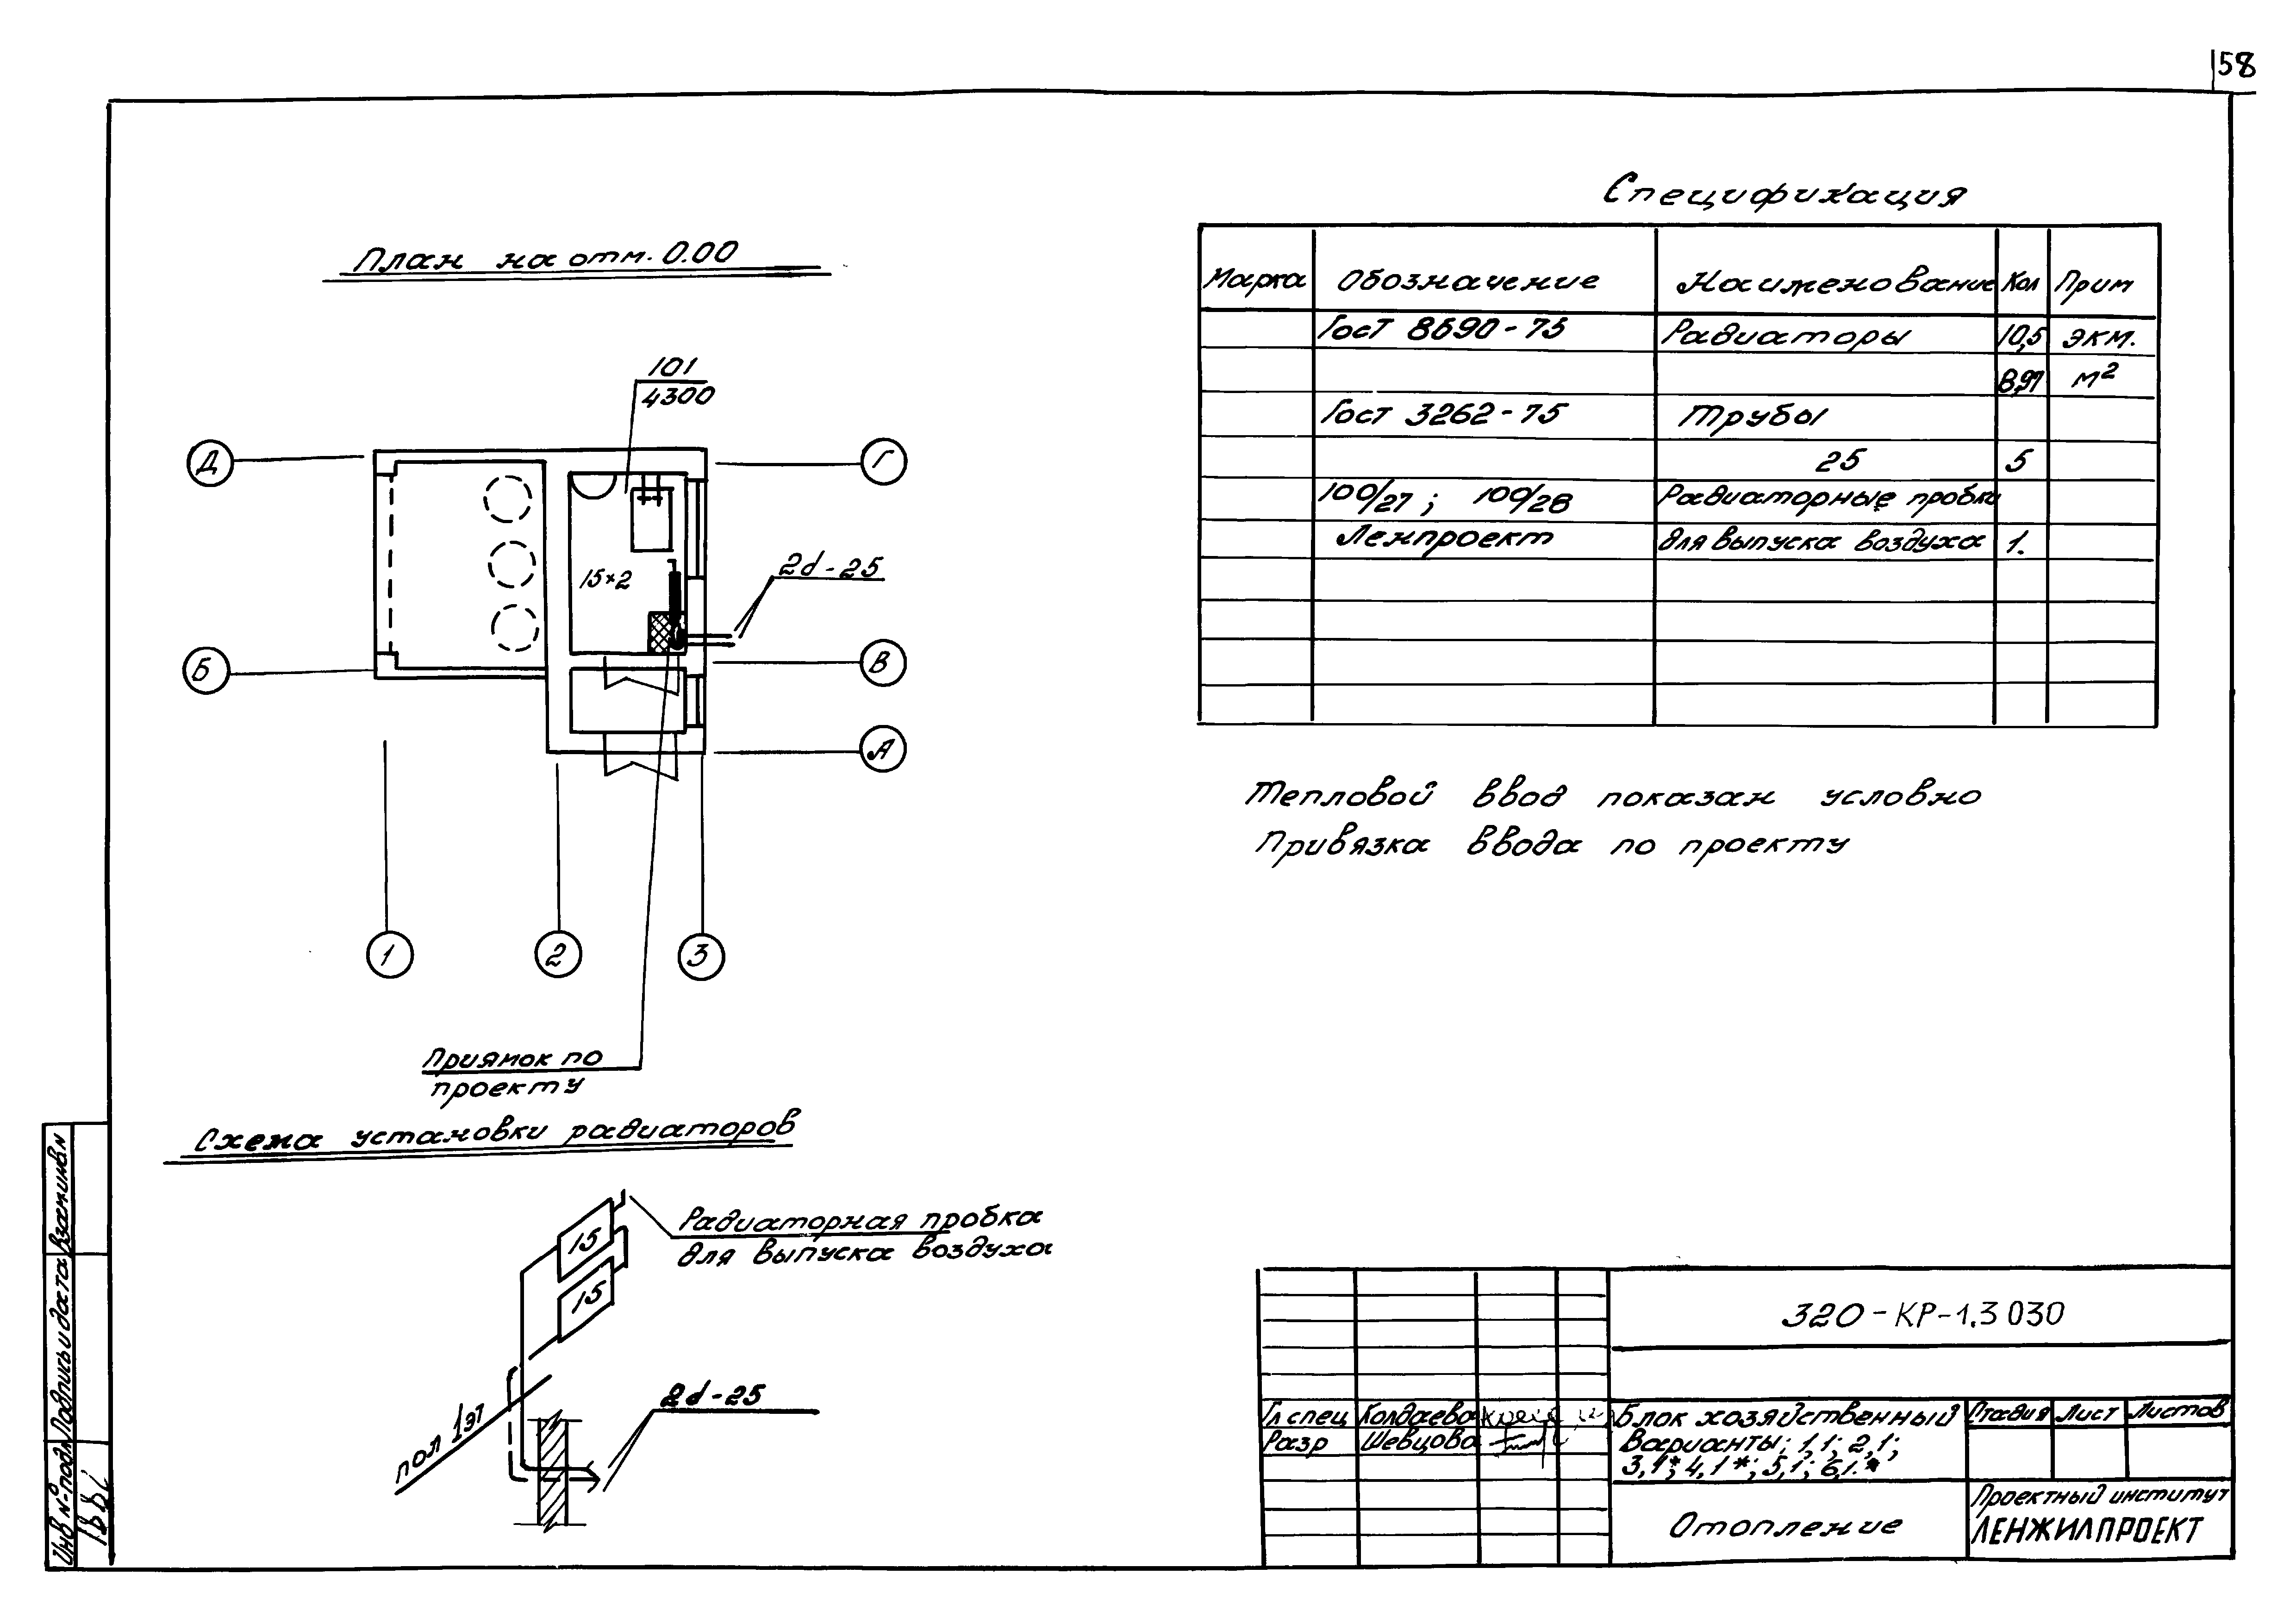 58
План на отм. 0.00
101
4300
Д
Г
15×2
2d-25
Б
В
А
1
2
3
Приямок по
проекту
Схема установки радиаторов
15
15
Радиаторная пробка
для выпуска воздуха
пол 1эт
2d-25
Спецификация
Марка Обозначение Наименование Кол Прим
Гост 8690-75 Радиаторы 10,5 экм.
8,97 м²
Гост 3262-75 Трубы
25 5
100/27 ; 100/28 Радиаторные пробки
Ленпроект для выпуска воздуха 1.
Тепловой ввод показан условно
Привязка ввода по проекту
320-КР-1.3 030
Гл спец Колдаева
Разр Шевцова
Блок хозяйственный
Варианты; 1,1; 2,1;
3,1*; 4,1*; 5,1; 6,1.*
Стадия Лист Листов
Отопление
Проектный институт
ЛЕНЖИЛПРОЕКТ
Инв № подл Подпись и дата Взам инв №